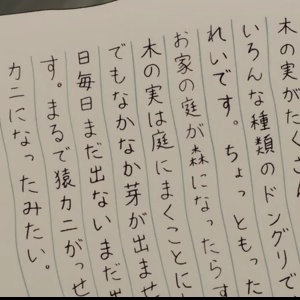 木の実がたくさん
いろんな種類のドングリで
れいです。ちょっともった
お家の庭が森になったらす
木の実は庭にまくことに
でもなかなか芽が出ませ
日毎日まだ出ないまだ出
す。まるで猿カニがっせ
カニになったみたい。